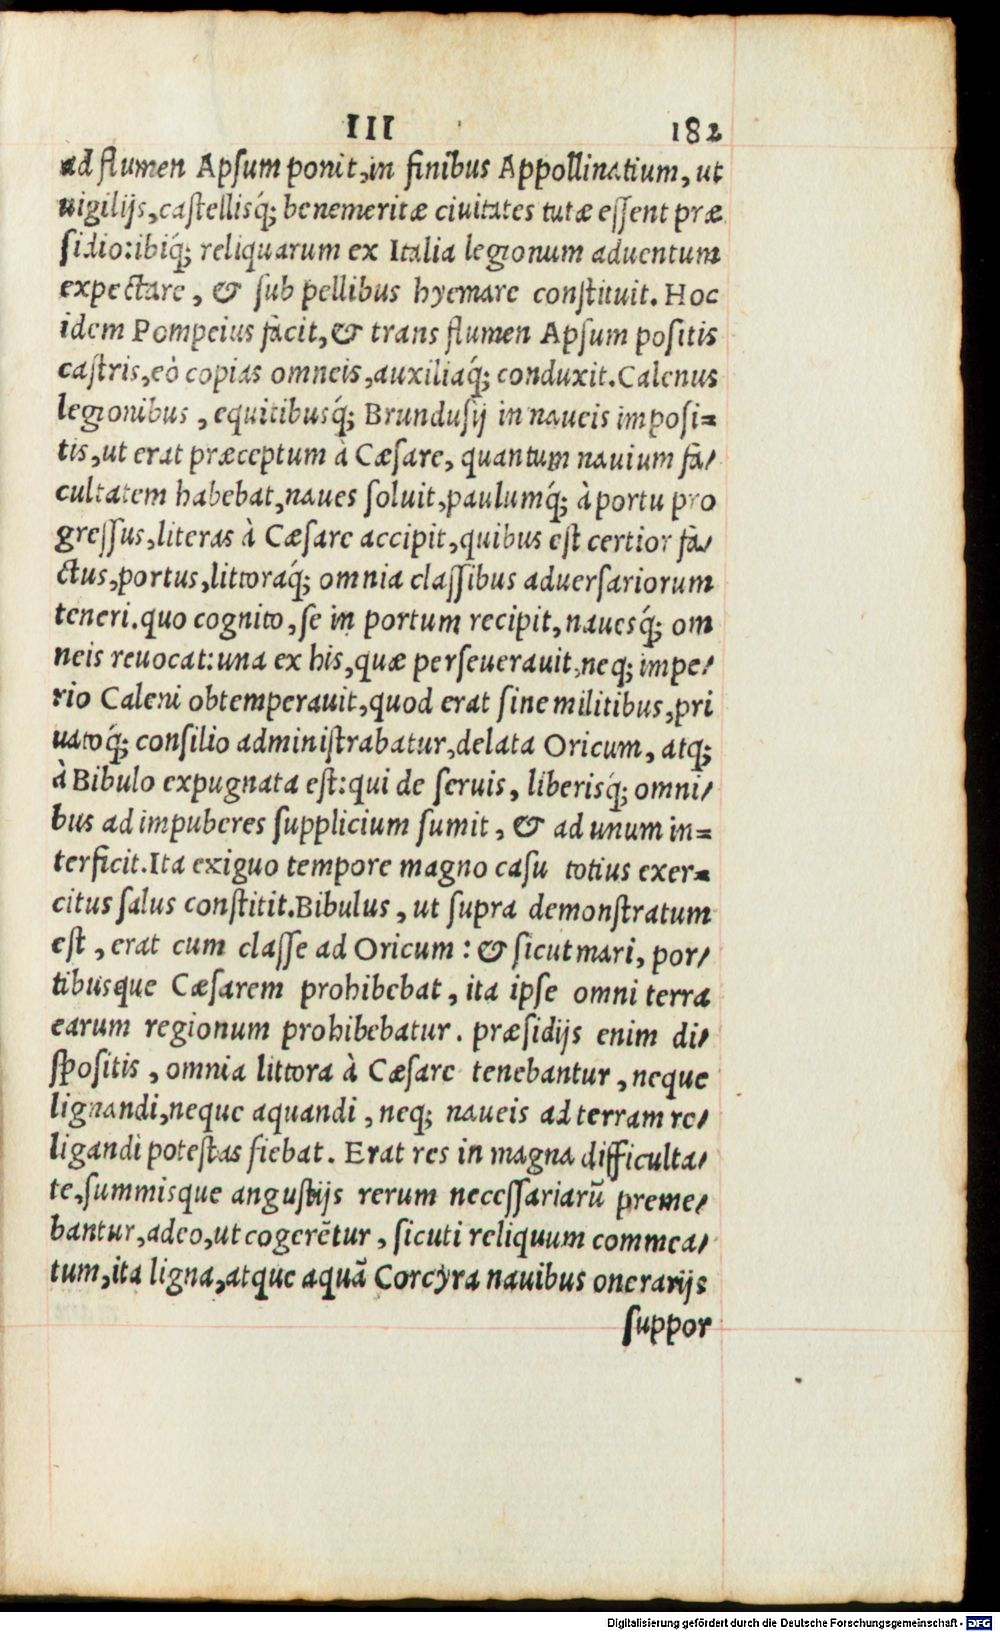 III 182
ad flumen Apsum ponit, in finibus Appollinatium, ut
uigilijs, castellisq́; benemeritæ ciuitates tutæ essent præ
sidio: ibiq́; reliquarum ex Italia legionum aduentum
expectare, & sub pellibus hyemare constituit. Hoc
idem Pompeius facit, & trans flumen Apsum positis
castris, eò copias omneis, auxiliaq́; conduxit. Calenus
legionibus, equitibusq́; Brundusij in naueis imposi=
tis, ut erat præceptum à Cæsare, quantum nauium fa/
cultatem habebat, naues soluit, paulumq́; à portu pro
gressus, literas à Cæsare accipit, quibus est certior fa/
ctus, portus, littoraq́; omnia classibus aduersariorum
teneri. quo cognito, se in portum recipit, nauesq́; om
neis reuocat: una ex his, quæ perseuerauit, neq; impe/
rio Caleni obtemperauit, quod erat sine militibus, pri
uatoq́; consilio administrabatur, delata Oricum, atq;
à Bibulo expugnata est: qui de seruis, liberisq́; omni/
bus ad impuberes supplicium sumit, & ad unum in=
terficit. Ita exiguo tempore magno casu totius exer=
citus salus constitit. Bibulus, ut supra demonstratum
est, erat cum classe ad Oricum: & sicut mari, por/
tibusque Cæsarem prohibebat, ita ipse omni terra
earum regionum prohibebatur. præsidijs enim di/
spositis, omnia littora à Cæsare tenebantur, neque
lignandi, neque aquandi, neq; naueis ad terram re/
ligandi potestas fiebat. Erat res in magna difficulta/
te, summisque angustijs rerum necessariarũ preme/
bantur, adeo, ut cogerẽtur, sicuti reliquum commea/
tum, ita ligna, atque aquã Corcyra nauibus onerarijs
suppor
Digitalisierung gefördert durch die Deutsche Forschungsgemeinschaft - DFG